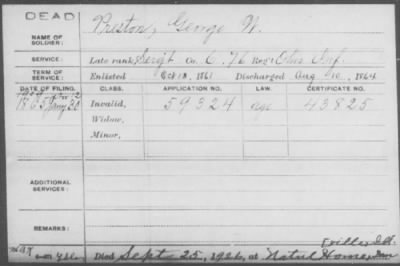 DEAD
NAME OF SOLDIER: Preston, George W.
SERVICE: Late rank, Sergt Co. C, 76 Reg't Ohio Inf.
TERM OF SERVICE: Enlisted Oct 18, 1861 Discharged Aug 1864
DATE OF FILING. CLASS. APPLICATION NO. LAW. CERTIFICATE NO.
1865 30 Invalid, 59324 age 43825
Widow,
Minor,
ADDITIONAL SERVICES:
REMARKS:
ville, Ill.
Died Sept 25, 1926, at Natnl Home, Dan